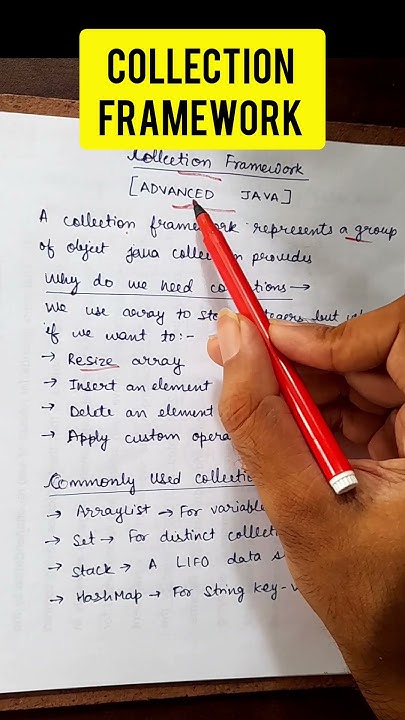 COLLECTION
FRAMEWORK
Collection Framework
[ADVANCED JAVA]
A collection framework represents a group
of object java collection provides
Why do we need →
We use array to but
if we want to:-
→ Resize array
→ Insert an element
→ Delete an element
→ Apply custom
Commonly Used
→ ArrayList → For variable
→ Set → For distinct
→ Stack → A LIFO data
→ HashMap → For String key-